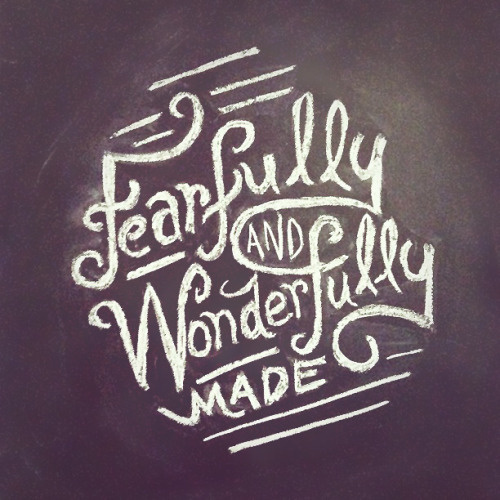 Fearfully
AND
Wonderfully
MADE